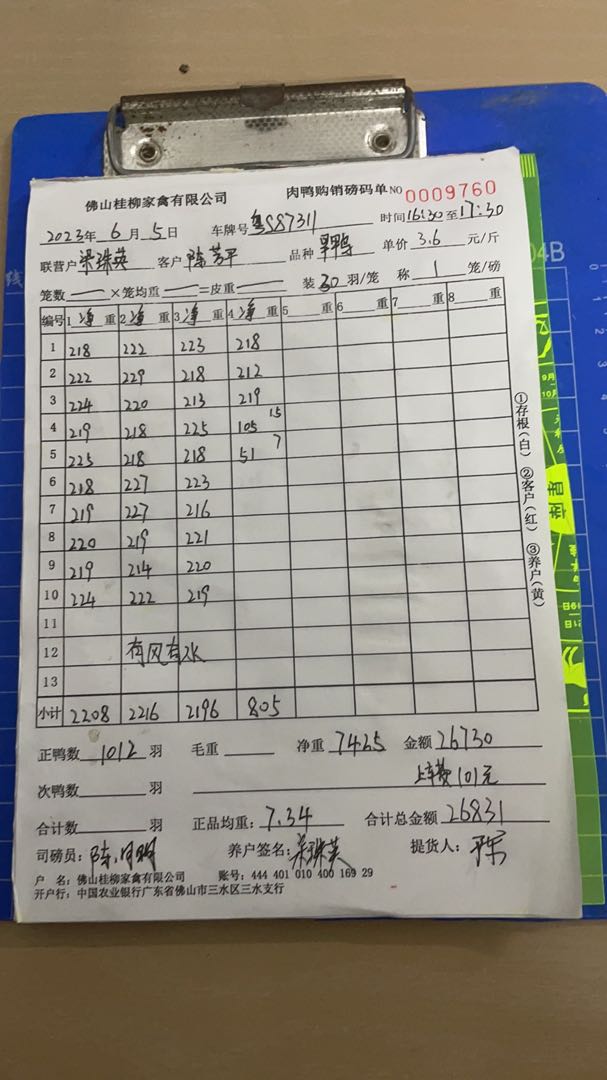 佛山桂柳家禽有限公司 肉鸭购销磅码单 NO 0009760
2023年 6月 5日 车牌号 粤S87311 时间 16:30 至 17:30
联营户 梁珠英 客户 陈芳平 品种 单价 3.6 元/斤
笼数 — ×笼均重 — =皮重 — 装 30 羽/笼 称 1 笼/磅
编号 1 净 重 2 净 重 3 净 重 4 净 重 5 重 6 重 7 重 8 重
1 218 222 223 218
2 222 229 218 212
3 224 220 213 219
4 219 218 225 105 15
5 225 218 218 51 7
6 218 227 223
7 219 227 216
8 220 219 221
9 219 214 220
10 224 222 219
11
12 有风有水
13
小计 2208 2216 2196 805
正鸭数 1012 羽 毛重 净重 7425 金额 26730
次鸭数 羽 上车费101元
合计数 羽 正品均重: 7.34 合计总金额 26831
司磅员: 陈 养户签名: 梁珠英 提货人:
户 名: 佛山桂柳家禽有限公司 账号: 444 401 010 400 169 29
开户行: 中国农业银行广东省佛山市三水区三水支行
①存根(白) ②客户(红) ③养户(黄)
04B
9月
10月
星座